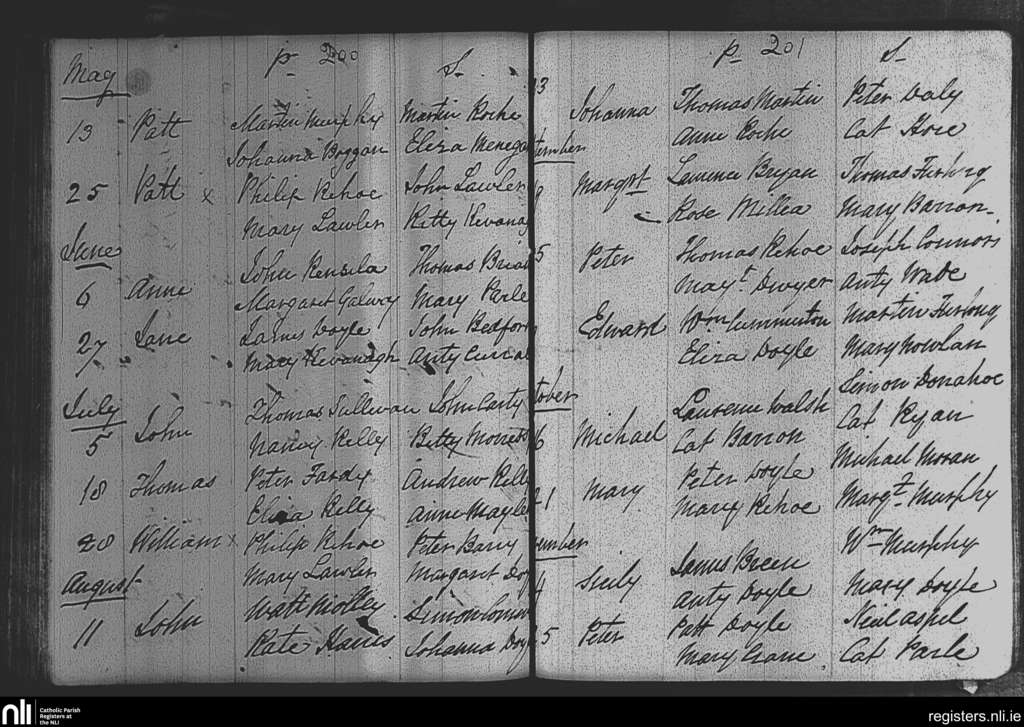 p- 200 s-
May
13 Patt Martin Murphy Martin Roche
Johanna Boggan Eliza
25 Patt x Philip Kehoe John Lawler
Mary Lawler Kitty Kevanag
June
6 Anne John Kensila Thomas Brian
Margaret Galwey Mary Parle
27 Jane James Doyle John Bedford
Mary Kevanagh Anty
July
5 John Thomas Sullivan John Carty
Nancy Kelly Betty
18 Thomas Peter Fardy Andrew Kelly
Eliza Kelly Anne Mayler
28 William x Philip Kehoe Peter Barry
Mary Lawler Margaret Doy
August
11 John Watt Molloy Simon
Kate Johanna Doy
p- 201 s-
3 Johanna Thomas Martin Peter Daly
Anne Roche Cat Hore
tember
Margrt Laurence Bryan Thomas Furlong
Rose Millea Mary Barron
5 Peter Thomas Kehoe Joseph Connors
Mayt Dwyer Anty Wade
Edward Wm Cummerton Martin Furlong
Eliza Doyle Mary Nowlan
tober
6 Michael Laurence Walsh Simon Donahoe
Cat Barron Cat Ryan
21 Mary Peter Doyle Michael Moran
Mary Kehoe Margt Murphy
vember
4 James Breen Wm Murphy
Anty Doyle Mary Doyle
5 Peter Patt Doyle Neil Aspel
Mary Crane Cat Parle
nli Catholic Parish
Registers at
the NLI
registers.nli.ie